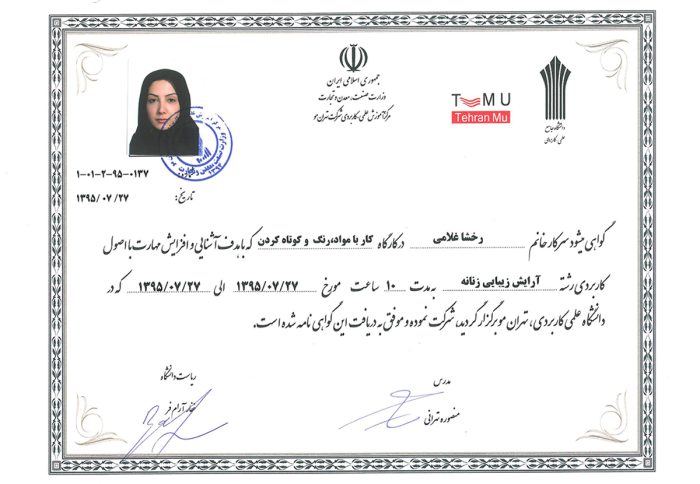 جمهوری اسلامی ایران
وزارت صنعت، معدن و تجارت
مرکز آموزش علمی، کاربردی شرکت تهران مو
TeMU
Tehran Mu
دانشگاه جامع
علمی کاربردی
۱-۰۱-۲-۹۵-۰۱۳۷
تاریخ: ۱۳۹۵/۰۷/۲۷
گواهی میشود سرکار خانم رخشا غلامی در کارگاه کار با مواد،رنگ و کوتاه کردن که با هدف آشنایی و افزایش مهارت با اصول
کاربردی رشته آرایش زیبایی زنانه به مدت ۱۰ ساعت مورخ ۱۳۹۵/۰۷/۲۷ الی ۱۳۹۵/۰۷/۲۷ که در
دانشگاه علمی کاربردی، تهران مو برگزار گردید، شرکت نموده و موفق به دریافت این گواهی نامه شده است.
مدرس
منصوره تهرانی
ریاست دانشگاه
آرام فر